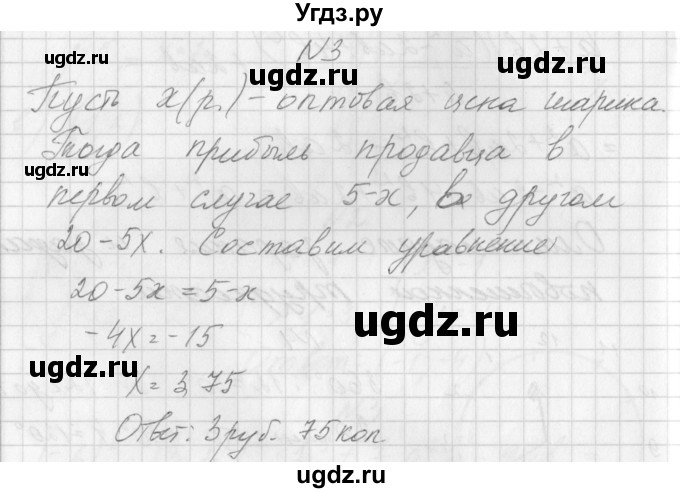 Угдз.ру
N3
Пусть x(р.) – оптовая цена шарика.
Тогда прибыль продавца в
первом случае 5-x, во другом
20-5x. Составим уравнение
20-5x=5-x
-4x=-15
x=3,75
Ответ: 3 руб. 75 коп
ugdz.ru
ugdz.ru
ugdz.ru
ugdz.ru
ugdz.ru
ugdz.ru
ugdz.ru
ugdz.ru
ugdz.ru